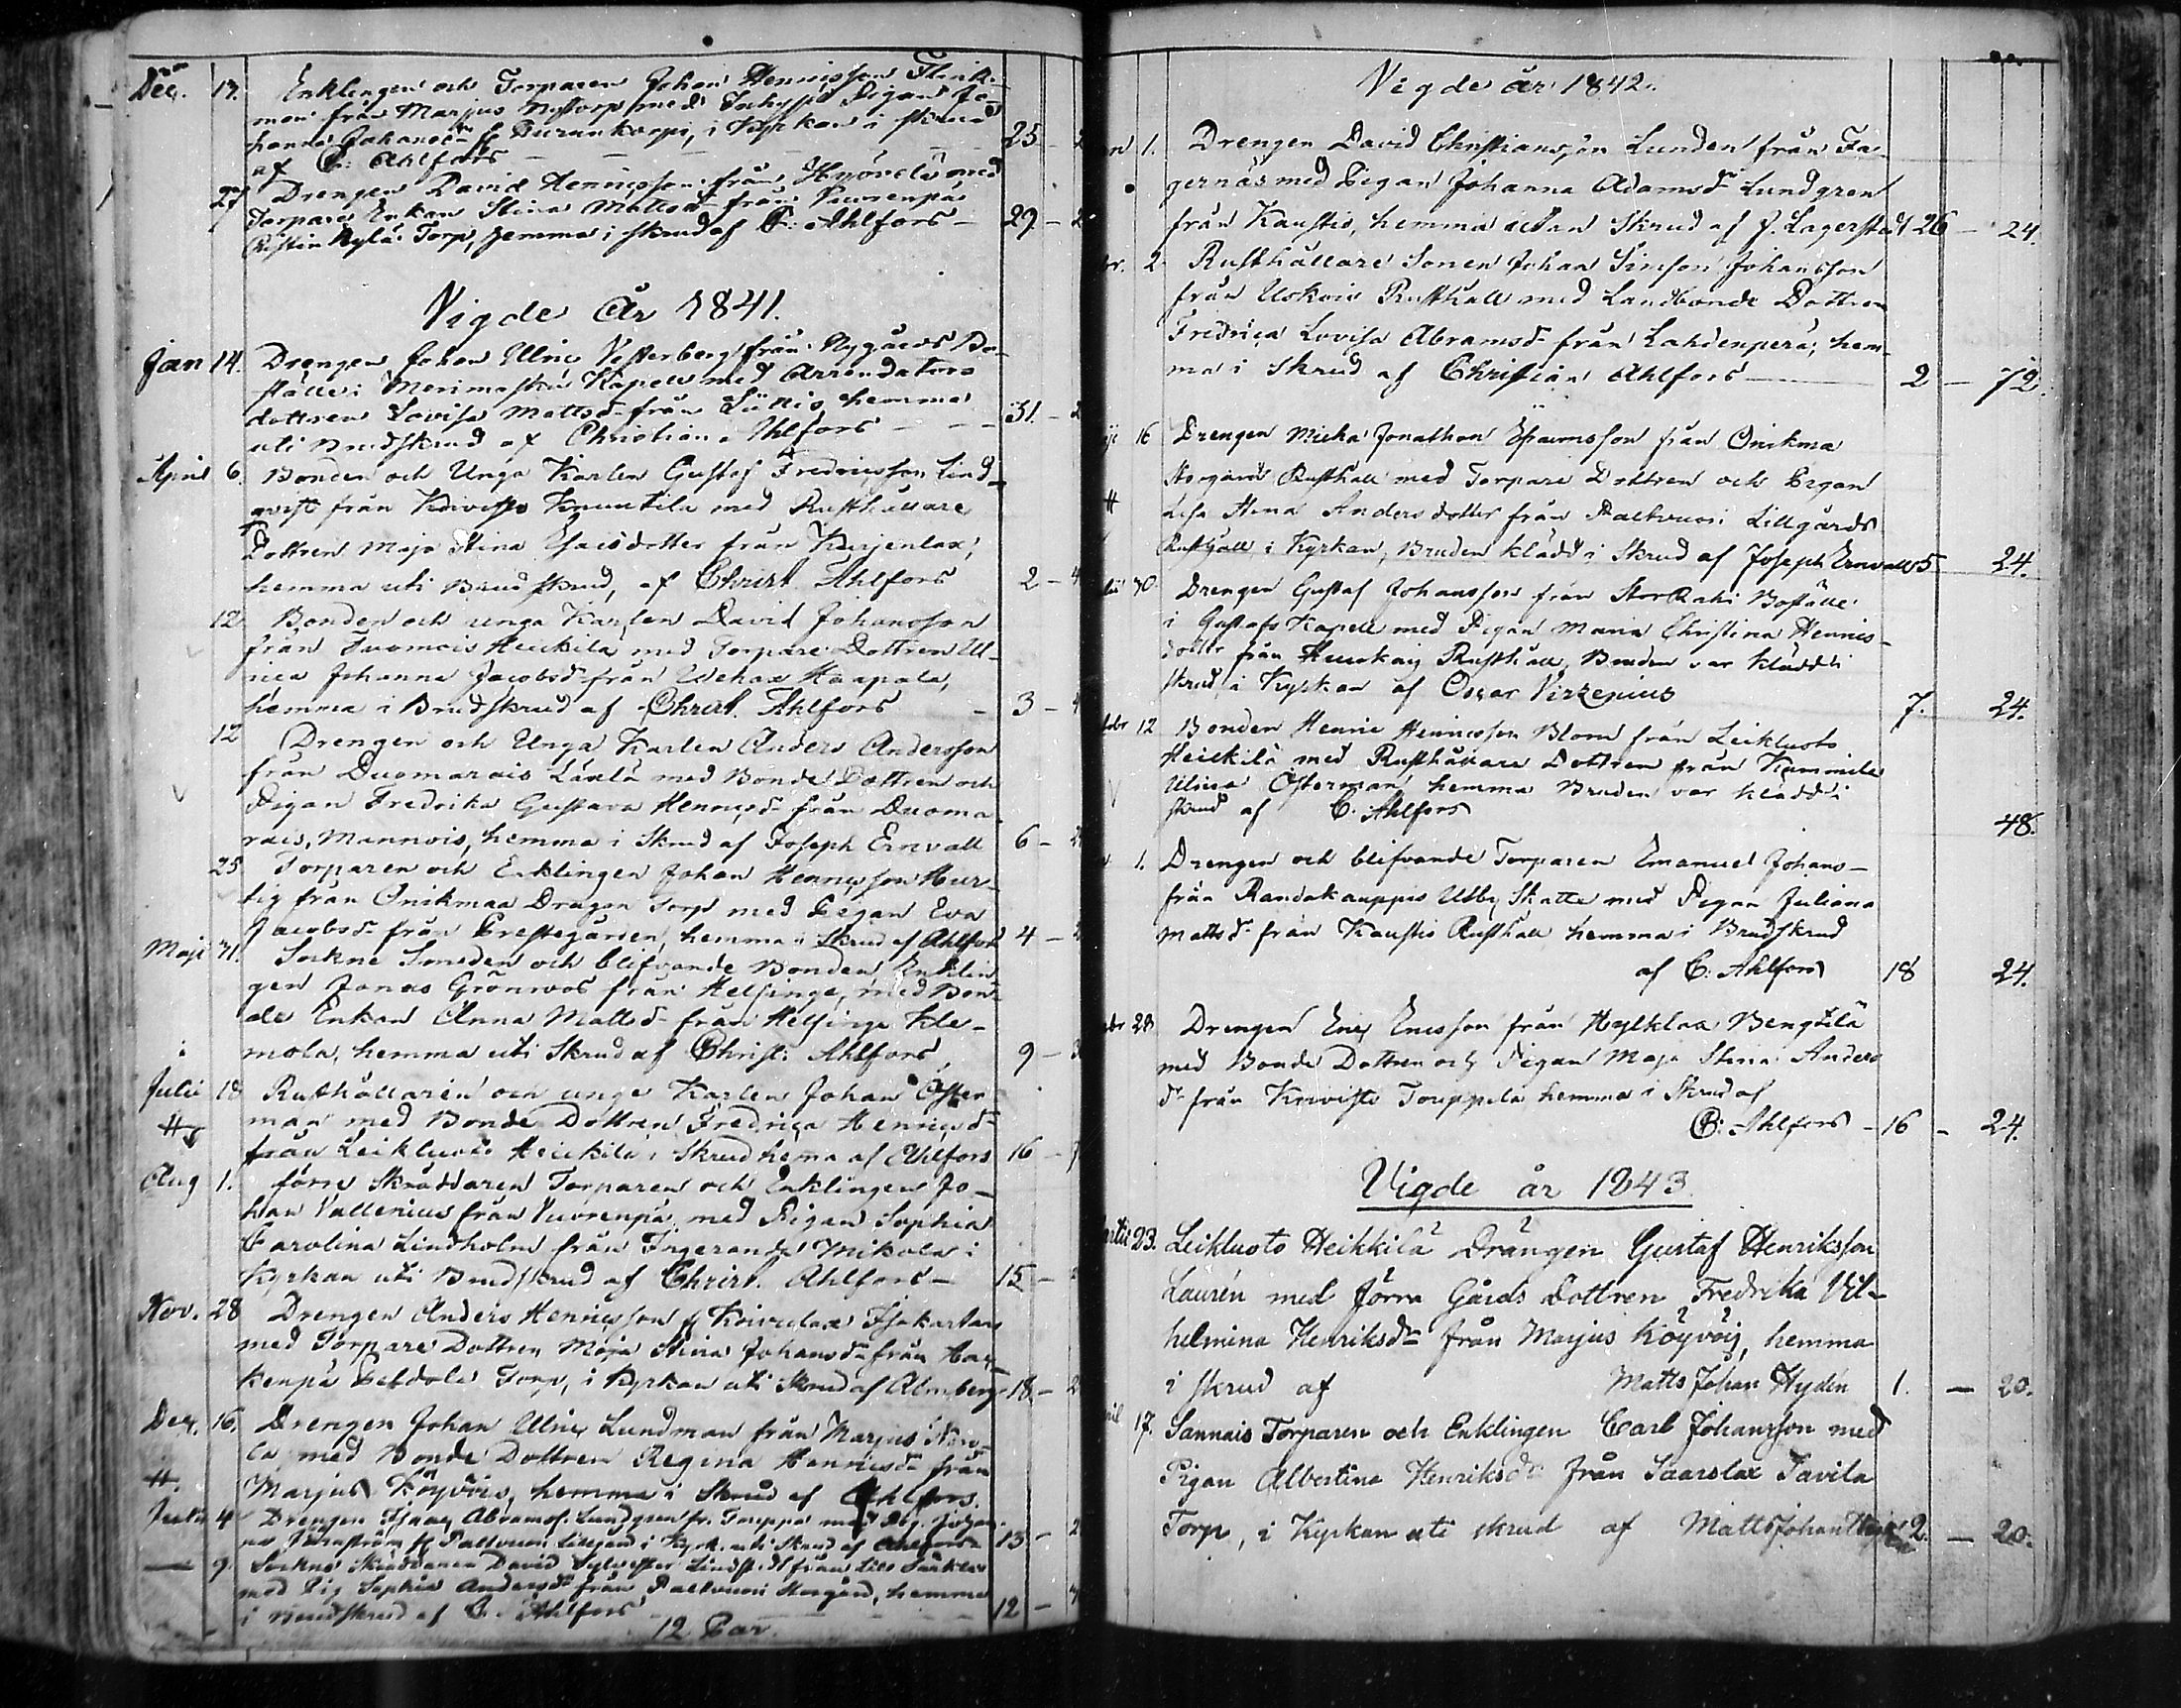 Dec. 17. Enklingen och Torparen Johan Henricsson Flink-
man från Marjus Nystorp med Inhyses Pigan Jo-
hanna Johansdr fr Purankorpi, i Kyrkan i skrud
af C: Ahlfors 25 - 2
27 Drengen David Henricsson från Hyörelä med
Torpare Enkan Stina Mattsdr från Vuorenpä
Ristin Kylä Torp, hemma i skrud af C: Ahlfors - 29 - 2
Vigde År 1841.
Jan 14. Drengen Johan Ulric Vesterberg från Nygårds Bo-
ställe i Merimasku Kapell med Arrendators
dottren Lovisa Mattsdr från hemma
uti Brudskrud af Christian Ahlfors - - - 31. - 2
April 6. Bonden och Unga Karlen Gustaf Fredricsson Lind-
qvist från Koivisto Knuutila med Rusthållare
Dottren Maja Stina Esaisdotter från Kurjenlax,
hemma uti Brudskrud, af Christ. Ahlfors 2 - 4
12 Bonden och unga Karlen David Johansson
från Tuomois Heickilä med Torpare Dottren Ul-
rica Johanna Jacobsdr från Udehax Haapala,
hemma i Brudskrud af Christ. Ahlfors - 3 - 4
12 Drengen och Unga Karlen Anders Andersson
från Duomarais Läxlä med Bonde Dottren och
Pigan Fredrika Gustava Henricsdr från Duoma
rais, Mannois, hemma i Skrud af Joseph Ernvall 6 - 2
25 Torparen och Enklingen Johan Henricsson Hur-
tig från Onikmaa Dragon Torp med Pigan Eva
Jacobsdr från Prestegården, hemma i Skrud af Ahlfors 4 - 2
Maji 31. Sockne Smeden och blifvande Bonden Enklin
gen Jonas Grönroos från Helsinge, med Bon-
de Enkan Anna Mattsdr från Helsinge Kle-
mola, hemma uti Skrud af Christ: Ahlfors 9 - 3
Julii 18 Rusthållaren och unge Karlen Johan Öster
man med Bonde Dottren Fredrica Henricsdr
från Leikluoto Heickilä i Skrud hema af Ahlfors 16 -
Aug 1. förre Skräddaren Torparen och Enklingen Jo-
han Vallenius från Vuorenpä med Pigan Sophia
Carolina Lindholm från Mikola i
Kyrkan uti Brudskrud af Christ. Ahlfors - 15 -
Nov. 28 Drengen Anders Henricsson fr Koivulax Isokartan
med Torpare Dottren Maja Stina Johansdr från
Torp, i Kyrkan uti Skrud af Almberg 18. - 2
Dec. 16. Drengen Johan Ulric Lundman från Marjus
la, med Bonde Dottren Regina Henricsdr från
Marjus Köyvöis, hemma i Skrud af Ahlfors.
Julii 4 Drengen Isaac Abramss. Lundgren fr. Touppa med Pig. Johan-
na fr Paltvuori Lillgård i Kyrk. uti Skrud af Ahlfors 13 - 2
— 9. Sockne Skräddaren David Sylvester Lindstedt från Lill
med Pig Sophia Andersdr från Paltvuori Storgård, hemma
i Brudskrud af C. Ahlfors - - - 12 -
12 Par.
Vigde år 1842.
1. Drengen David Christiansson Lunden från Fa-
gernäs med Pigan Johanna Adamsdr Lundgren
från Kaustio, hemma utan Skrud af J. Lagerstedt 26 - 24.
2 Rusthållare Sonen Johan Simson Johansson
från Uskois Rusthåll med Landbonde Dottren
Fredrica Lovisa Abramsdr från Lahdenperä, hem-
ma i Skrud af Christian Ahlfors 2 - 72.
16 Drengen Micka Jonathan Ephraimsson från Onikma
Storgård Rusthåll med Torpare Dottren och Pigan
Lisa Stina Anders dotter från Paltvuori Lillgårds
Rusthåll i Kyrkan, Bruden klädd i Skrud af Joseph Ernvall 5 24.
30 Drengen Gustaf Johansson från StorRahi Boställe
i Gustafs Kapell med Pigan Maria Christina Henrics-
dotter från Rusthåll, Bruden var klädd i
skrud i Kyrkan af Oscar Virzenius 7. 24.
12 Bonden Henric Henricsson Blom från Leikluoto
Heickilä med Rusthållare Dottren från Kammila
Ulrica Österman hemma Bruden var klädd i
skrud af C. Ahlfors 48.
1. Drengen och blifvande Torparen Emanuel Johans-
från Randakauppis Utby Skatte med Pigan Juliana
Mattsdr från Kaustio Rusthåll hemma i Brudskrud
af C: Ahlfors 18 24.
28 Drengen Eric Ericsson från Hylklax Bengtilä
med Bonde Dottren och Pigan Maja Stina Anders
dr från Koivisto Touppila hemma i Skrud af
C: Ahlfors - 16 - 24.
Vigde år 1843.
23. Leikluoto Heikkilä Drängen Gustaf Henriksson
Laurén med förra Gårds Dottren Fredrika Vil-
helmina Henriksdr från Marjus Köyvöis, hemma
i skrud af Matts Johan Hydén 1. - 20.
17. Sannais Torparen och Enklingen Carl Johansson med
Pigan Albertina Henriksdr från Saarslax Tavila
Torp, i Kyrkan uti skrud af Matts Johan Hydén 2 - 20.